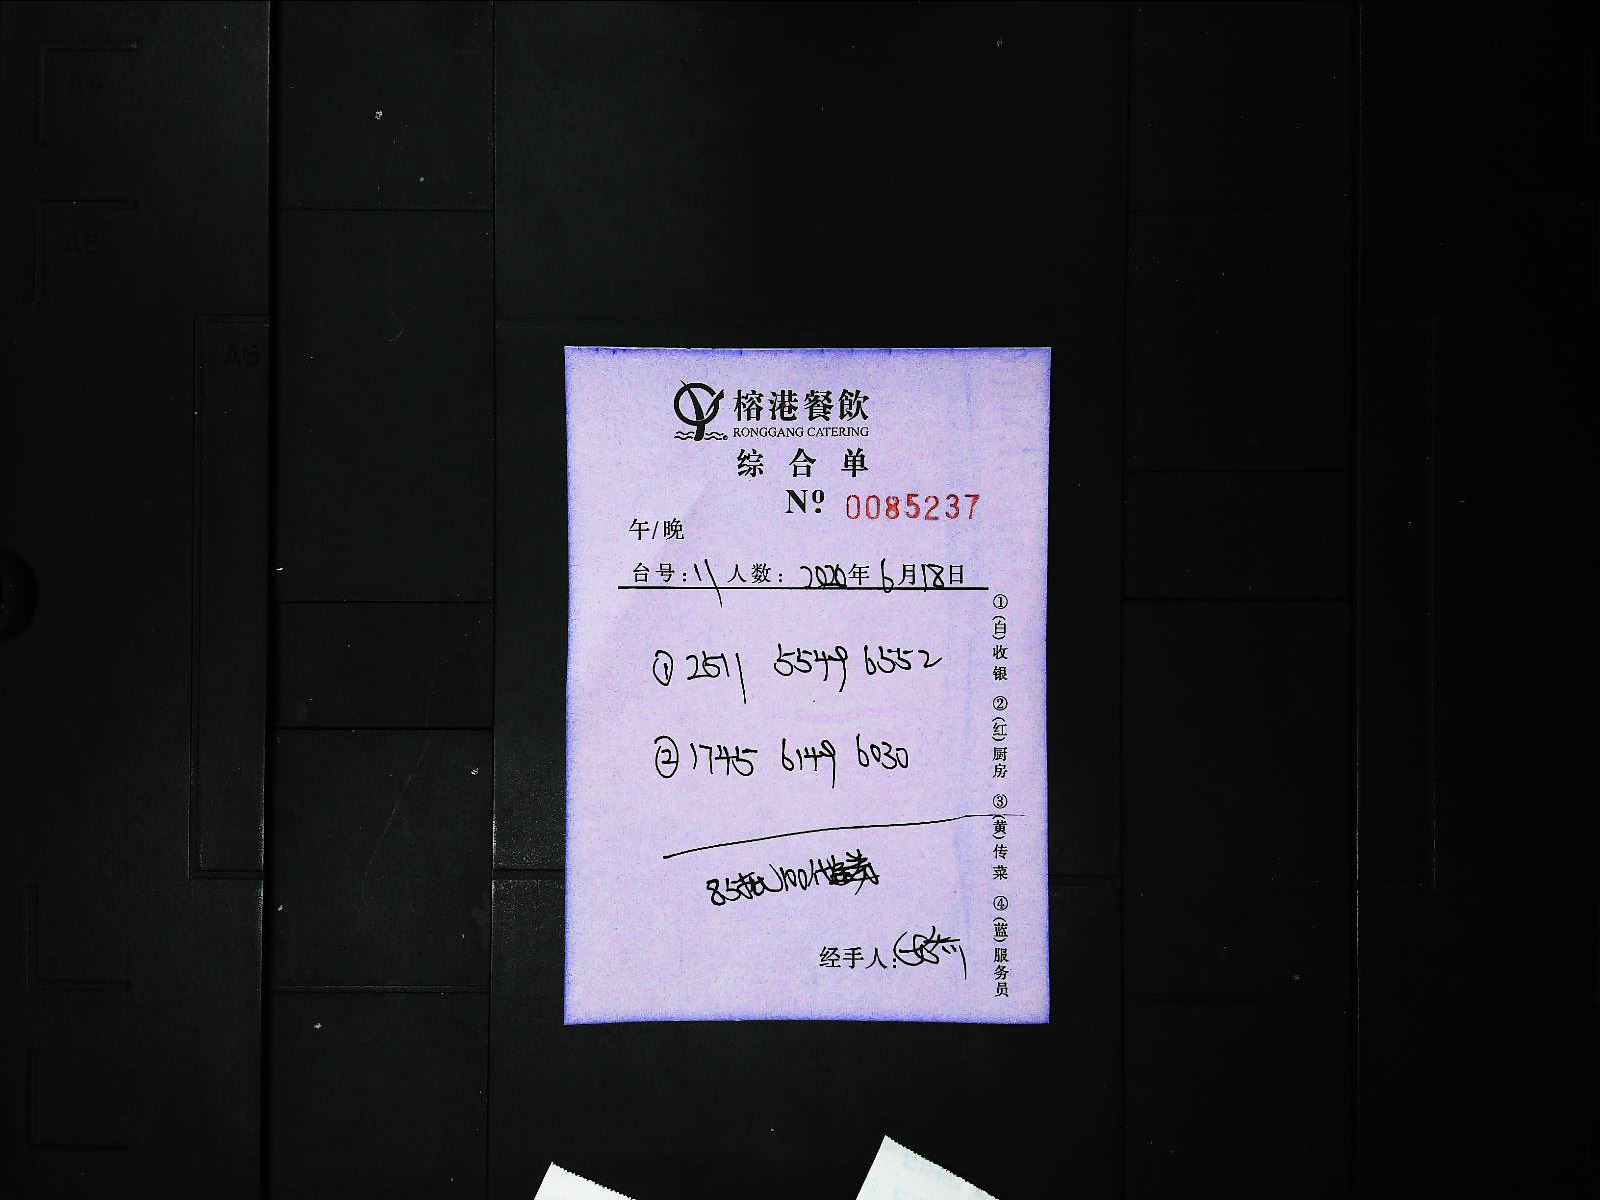 榕港餐飲
RONGGANG CATERING
综合单
Nº 0085237
午/晚
台号: 11 人数: 2020年6月18日
① 2511 5549 6552
② 1745 6149 6030
85抵100代金券
经手人:
①(白)收银 ②(红)厨房 ③(黄)传菜 ④(蓝)服务员
A4
A5
A6